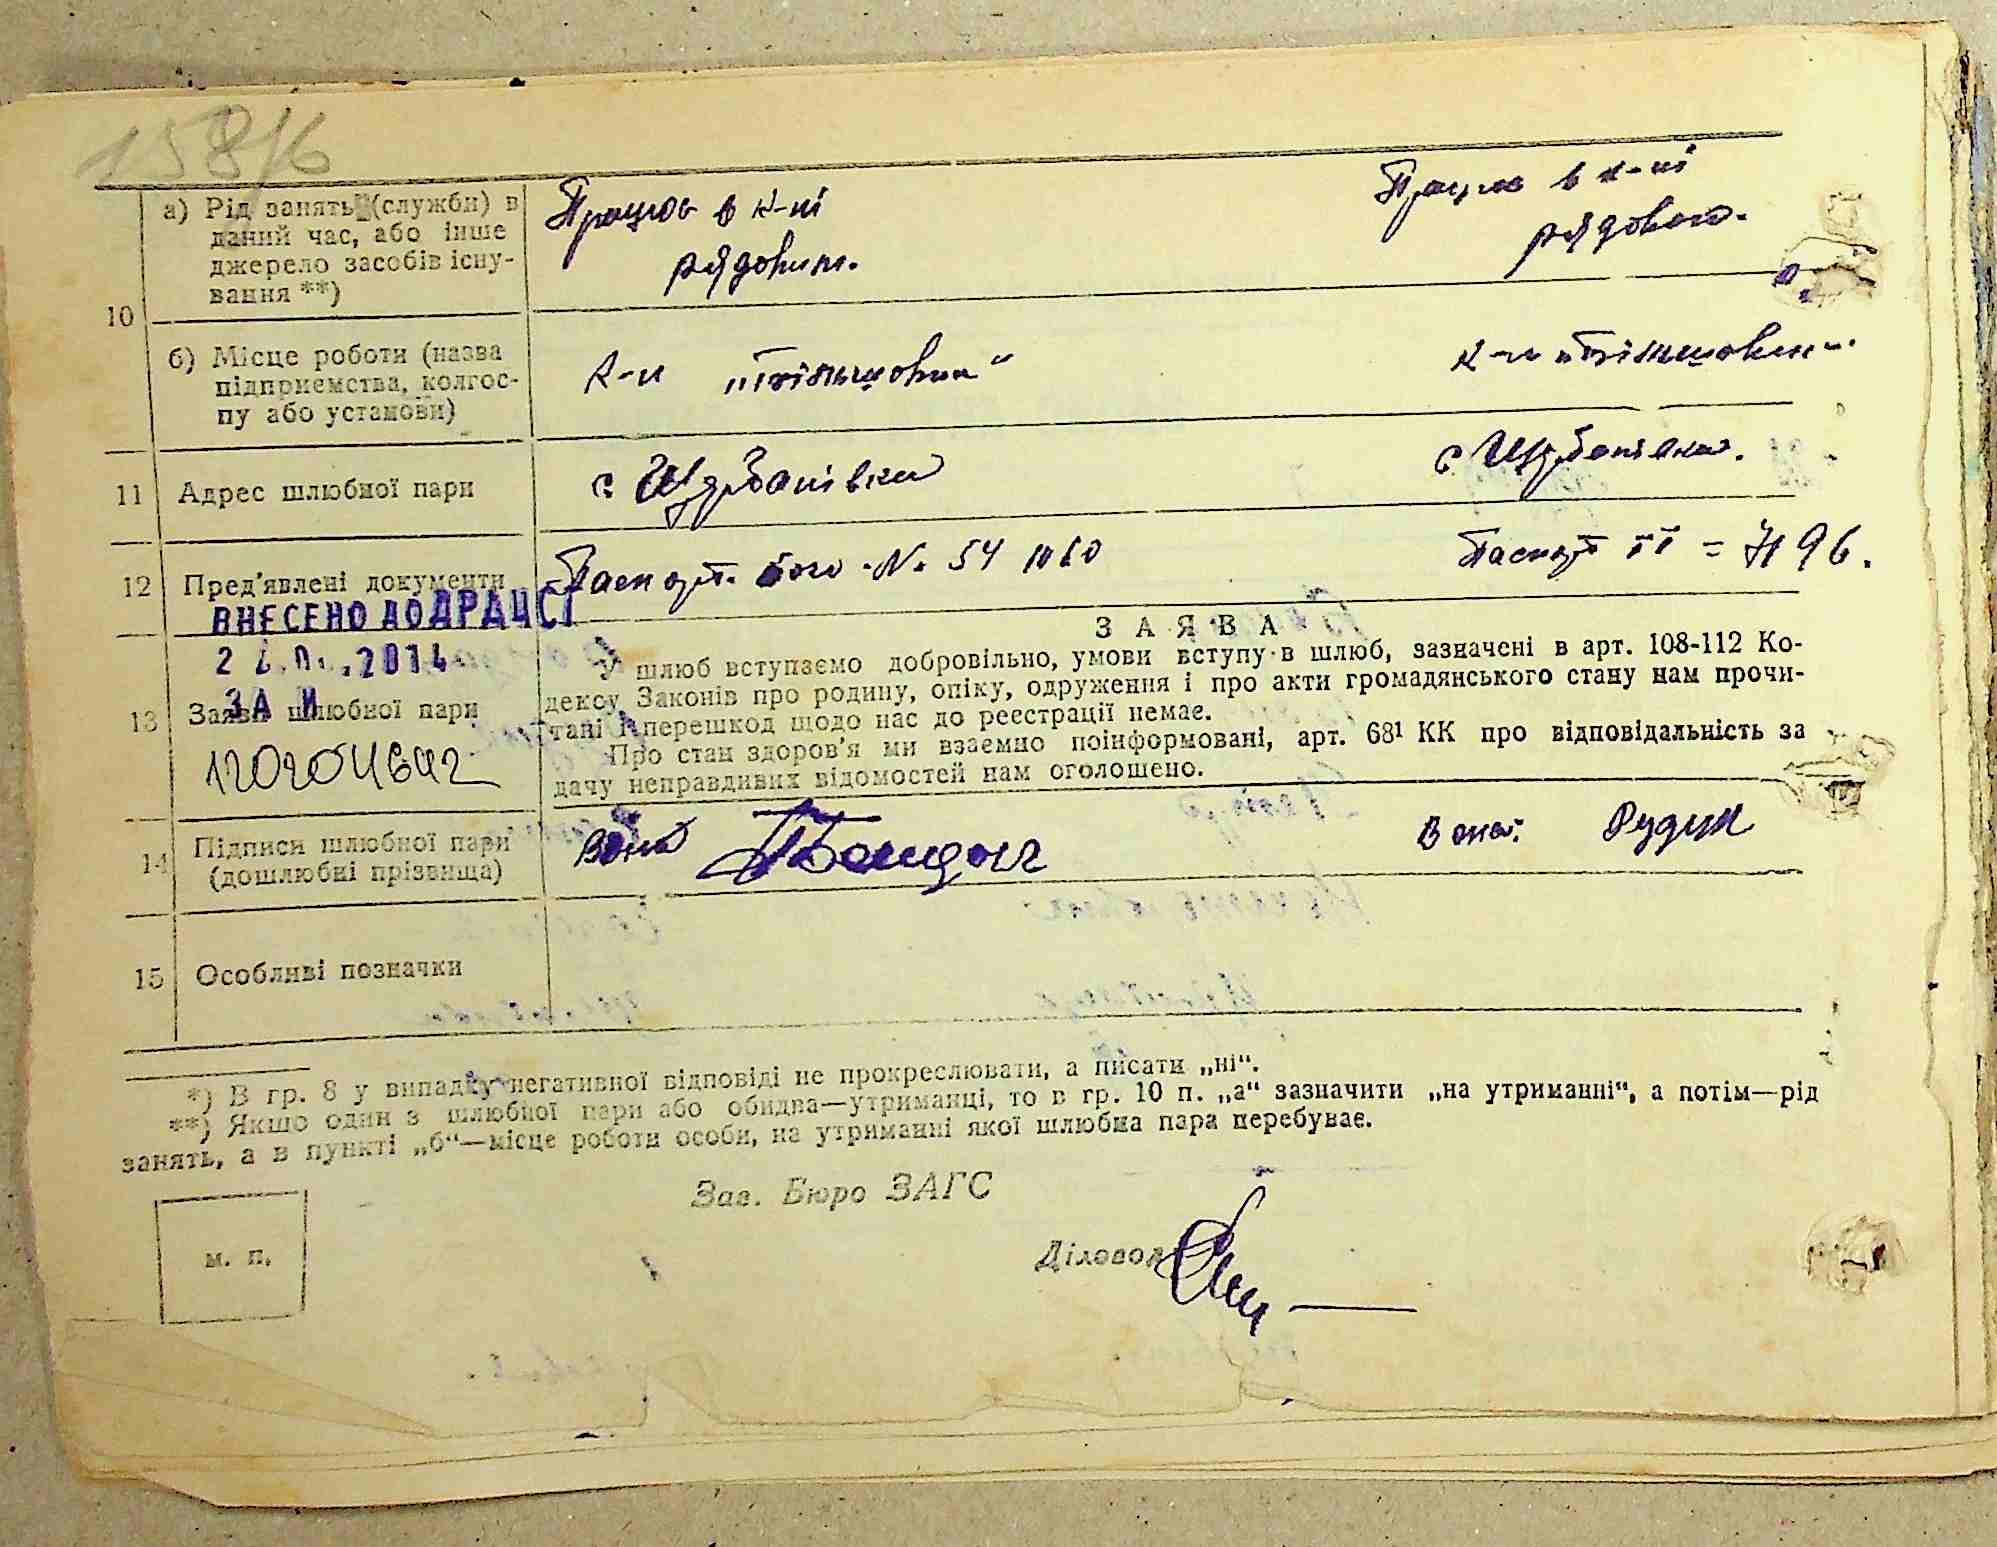 158/6
а) Рід занять (служби) в
даний час, або інше
джерело засобів існу-
вання **)
10
Працює в к-пі
рядовим.
Працює в к-пі
рядовою.
б) Місце роботи (назва
підприємства, колгос-
пу або установи)
к-п
к-п
11 Адрес шлюбної пари
с. Щербанівка
с. Щербанівка.
12 Пред'явлені документи
Паспорт № 54
Паспорт = 7196.
ВНЕСЕНО ДО ДРАЦСГ
2014
ЗА №
13 Заява шлюбної пари
12020 4642
ЗАЯВА
У шлюб вступаємо добровільно, умови вступу в шлюб, зазначені в арт. 108-112 Ко-
дексу Законів про родину, опіку, одруження і про акти громадянського стану нам прочи-
тані і перешкод щодо нас до реєстрації немає.
Про стан здоров'я ми взаємно поінформовані, арт. 68¹ КК про відповідальність за
дачу неправдивих відомостей нам оголошено.
14 Підписи шлюбної пари
(дошлюбні прізвища)
Вона: Рудук
15 Особливі позначки
*) В гр. 8 у випадку негативної відповіді не прокреслювати, а писати „ні“.
**) Якщо один з шлюбної пари або обидва—утриманці, то в гр. 10 п. „а“ зазначити „на утриманні“, а потім—рід
занять, а в пункті „б“—місце роботи особи, на утриманні якої шлюбна пара перебуває.
Зав. Бюро ЗАГС
м. п.
Діловод